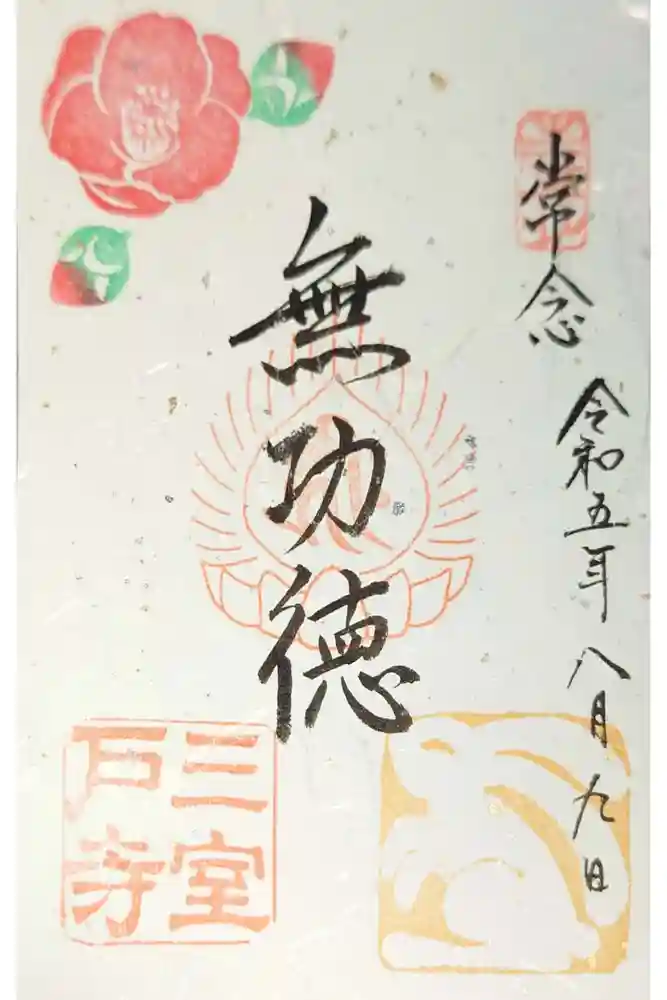 常念
令和五年八月九日
無功徳
三室
石寺